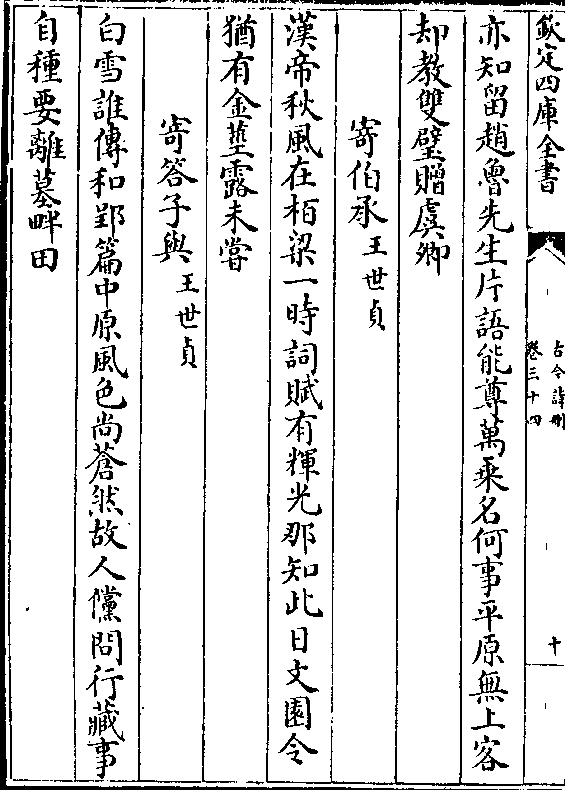 欽定四庫全書
古今詩刪
卷三十四
十
亦知留趙魯先生片語能尊萬乘名何事平原無上客
却教雙璧贈虞卿
寄伯承王世貞
漢帝秋風在栢梁一時詞賦有輝光那知此日文園令
猶有金莖露未嘗
寄答子與王世貞
白雪誰傳和郢篇中原風色尚蒼然故人儻問行藏事
自種要離墓畔田